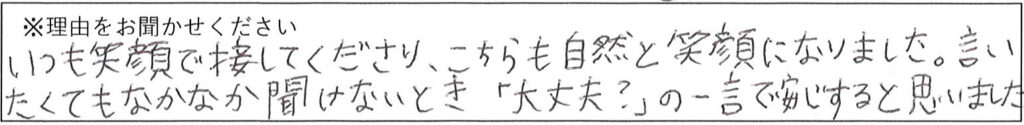 ※理由をお聞かせください
いつも笑顔で接してくださり、こちらも自然と笑顔になりました。言い
たくてもなかなか聞けないとき「大丈夫?」の一言で安じすると思いました